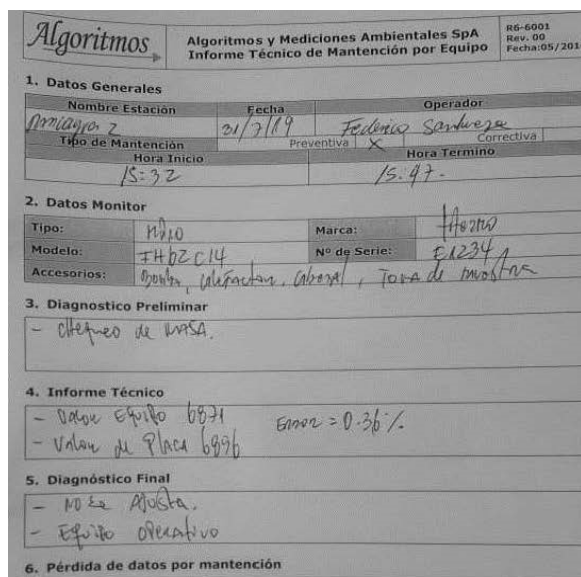 Algoritmos
Algoritmos y Mediciones Ambientales SpA
Informe Técnico de Mantención por Equipo
R6-6001
Rev. 00
Fecha:05/201
1. Datos Generales
Nombre Estación Fecha Operador
2 31/7/19 Federico
Tipo de Mantención Preventiva X Correctiva
Hora Inicio Hora Termino
15:32 15:47.
2. Datos Monitor
Tipo: Marca: Thermo
Modelo: FH62C14 Nº de Serie: E1234
Accesorios: Bomba, Calefactor, Cabezal, Toma de muestra
3. Diagnostico Preliminar
- Chequeo de MASA.
4. Informe Técnico
- Valor Equipo 6871 Error = 0.36%
- Valor de Placa 6896
5. Diagnóstico Final
- NO se Ajusta.
- Equipo Operativo
6. Pérdida de datos por mantención